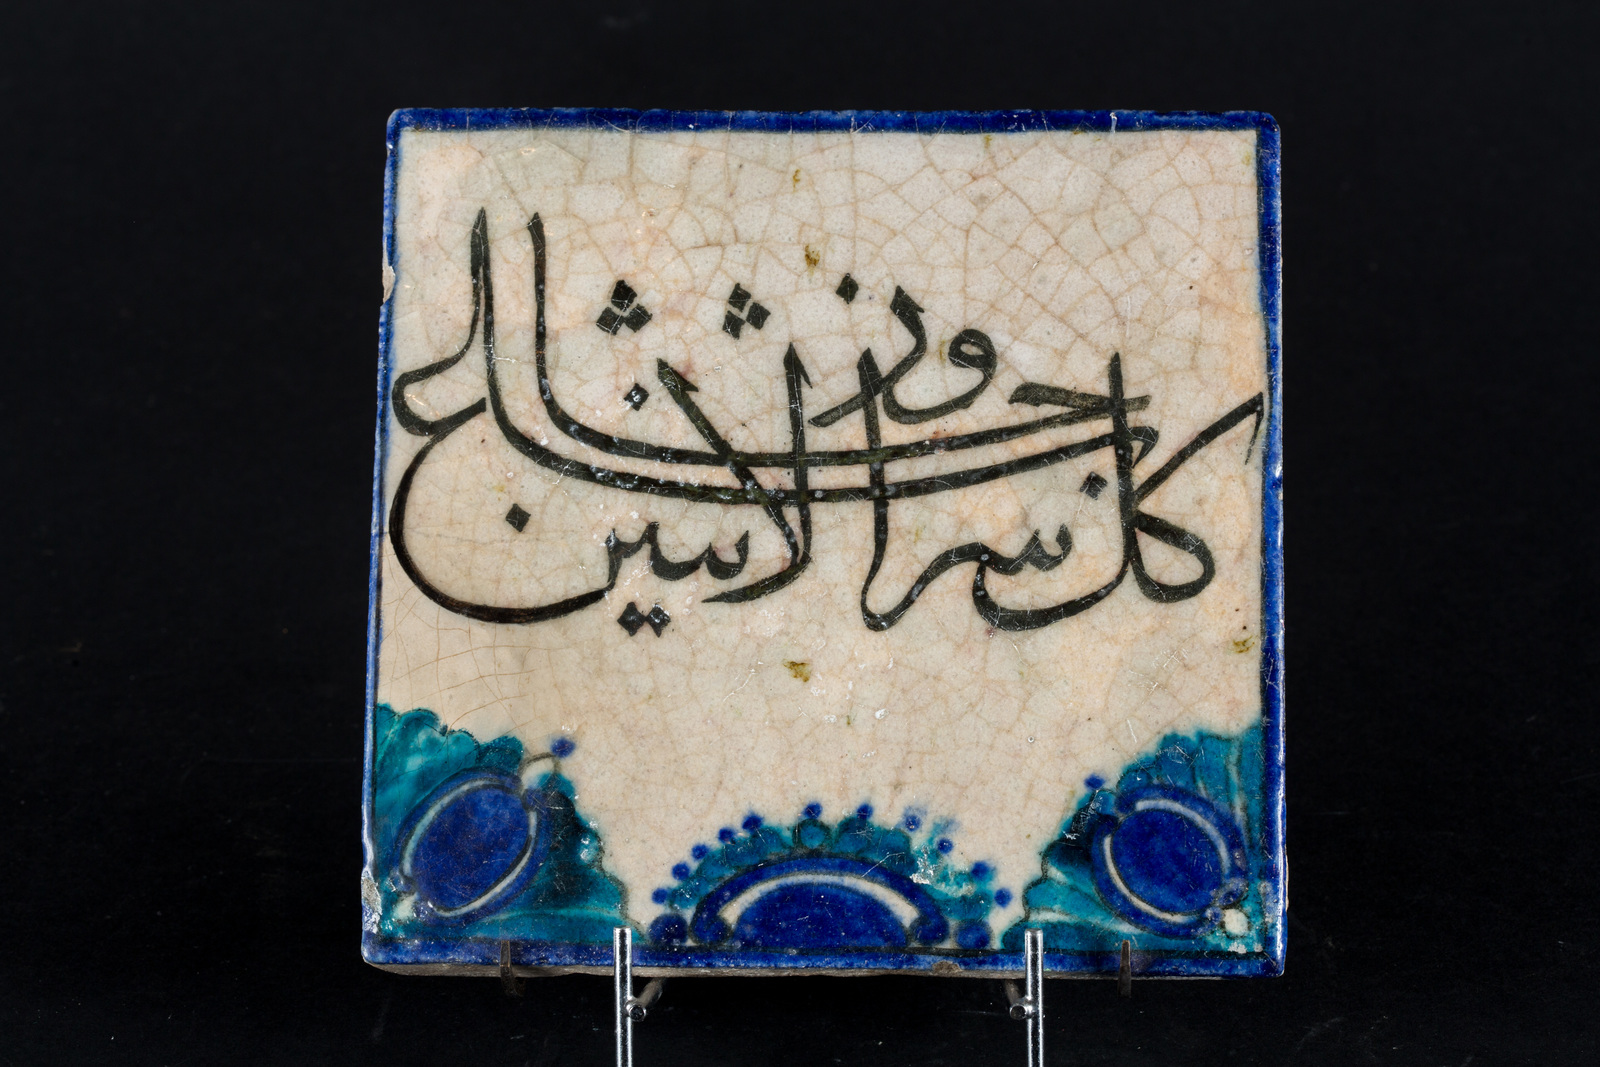 كل سر جاوز الاثنين شاع